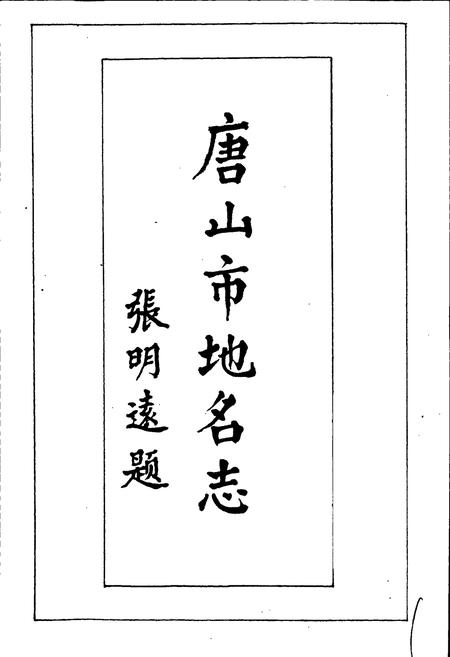 唐山市地名志
張明遠題